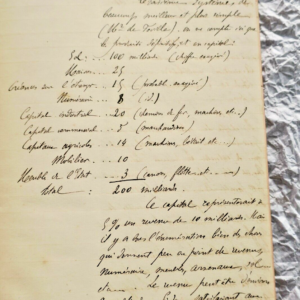 beaucoup meilleure et plus complète
(Mr de Foville), on ne compte ici que
Sol ..... 100 milliards (chiffre exagéré)
Maisons ... 25
Créances sur l'étranger ... 15 (probabl. exagéré)
Numéraire ... 8 (id)
Capital industriel ... 20 (chemins de fer, machines etc..)
Capital commercial .. 5 (marchandises)
Capitaux agricoles .. 14 (machines, bétail et...)
Mobilier .. 10
Meuble de l'Etat .... 3 (canons, flotte.. etc...)
Total : 200 milliards.
Le capital représenterait à
5 % un revenu de 10 milliards. Mais
il y a dans l'énumération bien des choses
qui donnent peu ou point de revenu
numéraire, meubles, arsenaux,
etc.... Le revenu peut être